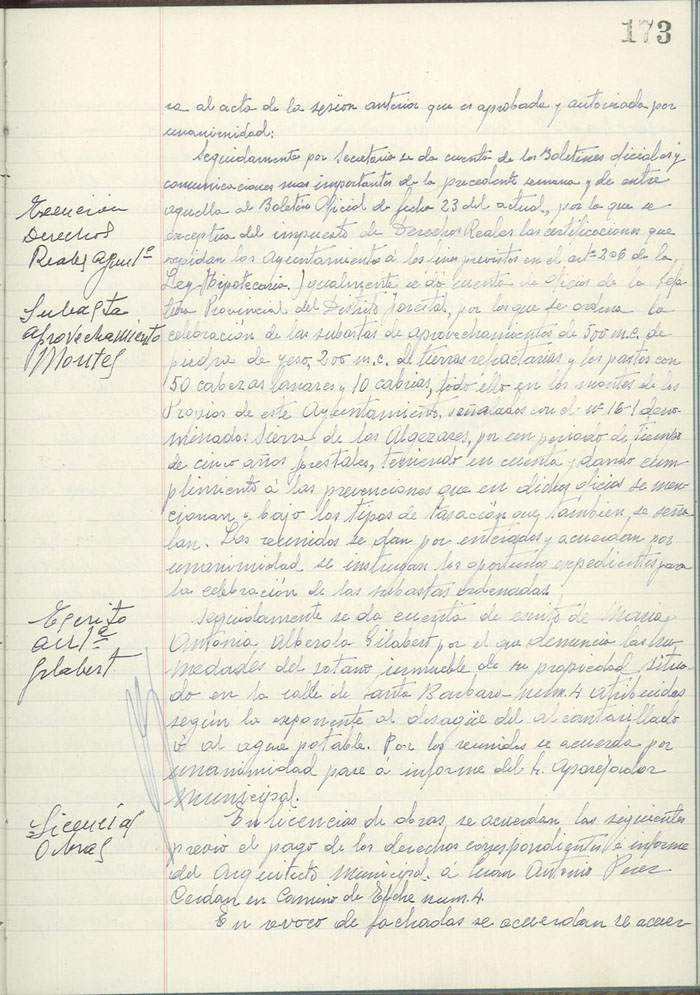 173
ra al acta de la sesión anterior que es aprobada y autorizada por
unanimidad:
Seguidamente por Secretario se da cuenta de los Boletines oficiales y
comunicaciones mas importantes de la precedente semana y de entre
Exención
Derechos
Reales
aquella al Boletin Oficial de fecha 23 del actual, por la que se
exceptua del impuesto de Derechos Reales las certificaciones que
expidan los Ayuntamiento á los fines previstos en el artº 206 de la
Ley Hipotecaria. Igualmente se dá cuenta de oficios de la Jefa-
Subasta
aprovechamiento
Montes
tura Provincial del Distrito forestal, por los que se ordena la
celebración de las subastas de aprovechamientos de 500 m.c. de
piedra de yeso, 200 m.c. de tierras refactarias y los pastos con
50 cabezas lanares y 10 cabrias, todo ello en los montes de los
Propios de este Ayuntamiento, señalados con el nº 16-1 deno-
minados Sierra de los Algezares, por un periodo de tiempo
de cinco años forestales, teniendo en cuenta y dando cum-
plimiento á las prevenciones que en dichos oficios se men-
cionan y bajo los tipos de tasación que tambien se seña-
lan. Los reunidos se dan por enterados y acuerdan por
unanimidad se instruyan los oportunos expedientes para
la celebración de las subastas ordenadas.
Escrito
Gilabert
Seguidamente se da cuenta de escrito de Maria
Antonia Alberola Gilabert por el que denuncia las hu-
medades del sotano inmueble de su propiedad situa-
do en la calle de Santa Barbara num. 4 atribuidas
según la exponente al desagüe del alcantarillado
ó al agua potable. Por los reunidos se acuerda por
unanimidad pase á informe del Sr. Aparejador
Municipal.
Licencias
Obras
En licencias de obras se acuerdan las siguientes
previo el pago de los derechos correspondientes e informe
del Arquitecto Municipal. á Juan Antonio Perez
Cerdan en Camino de Elche num. 4.
En revoco de fachadas se acuerdan se acuer